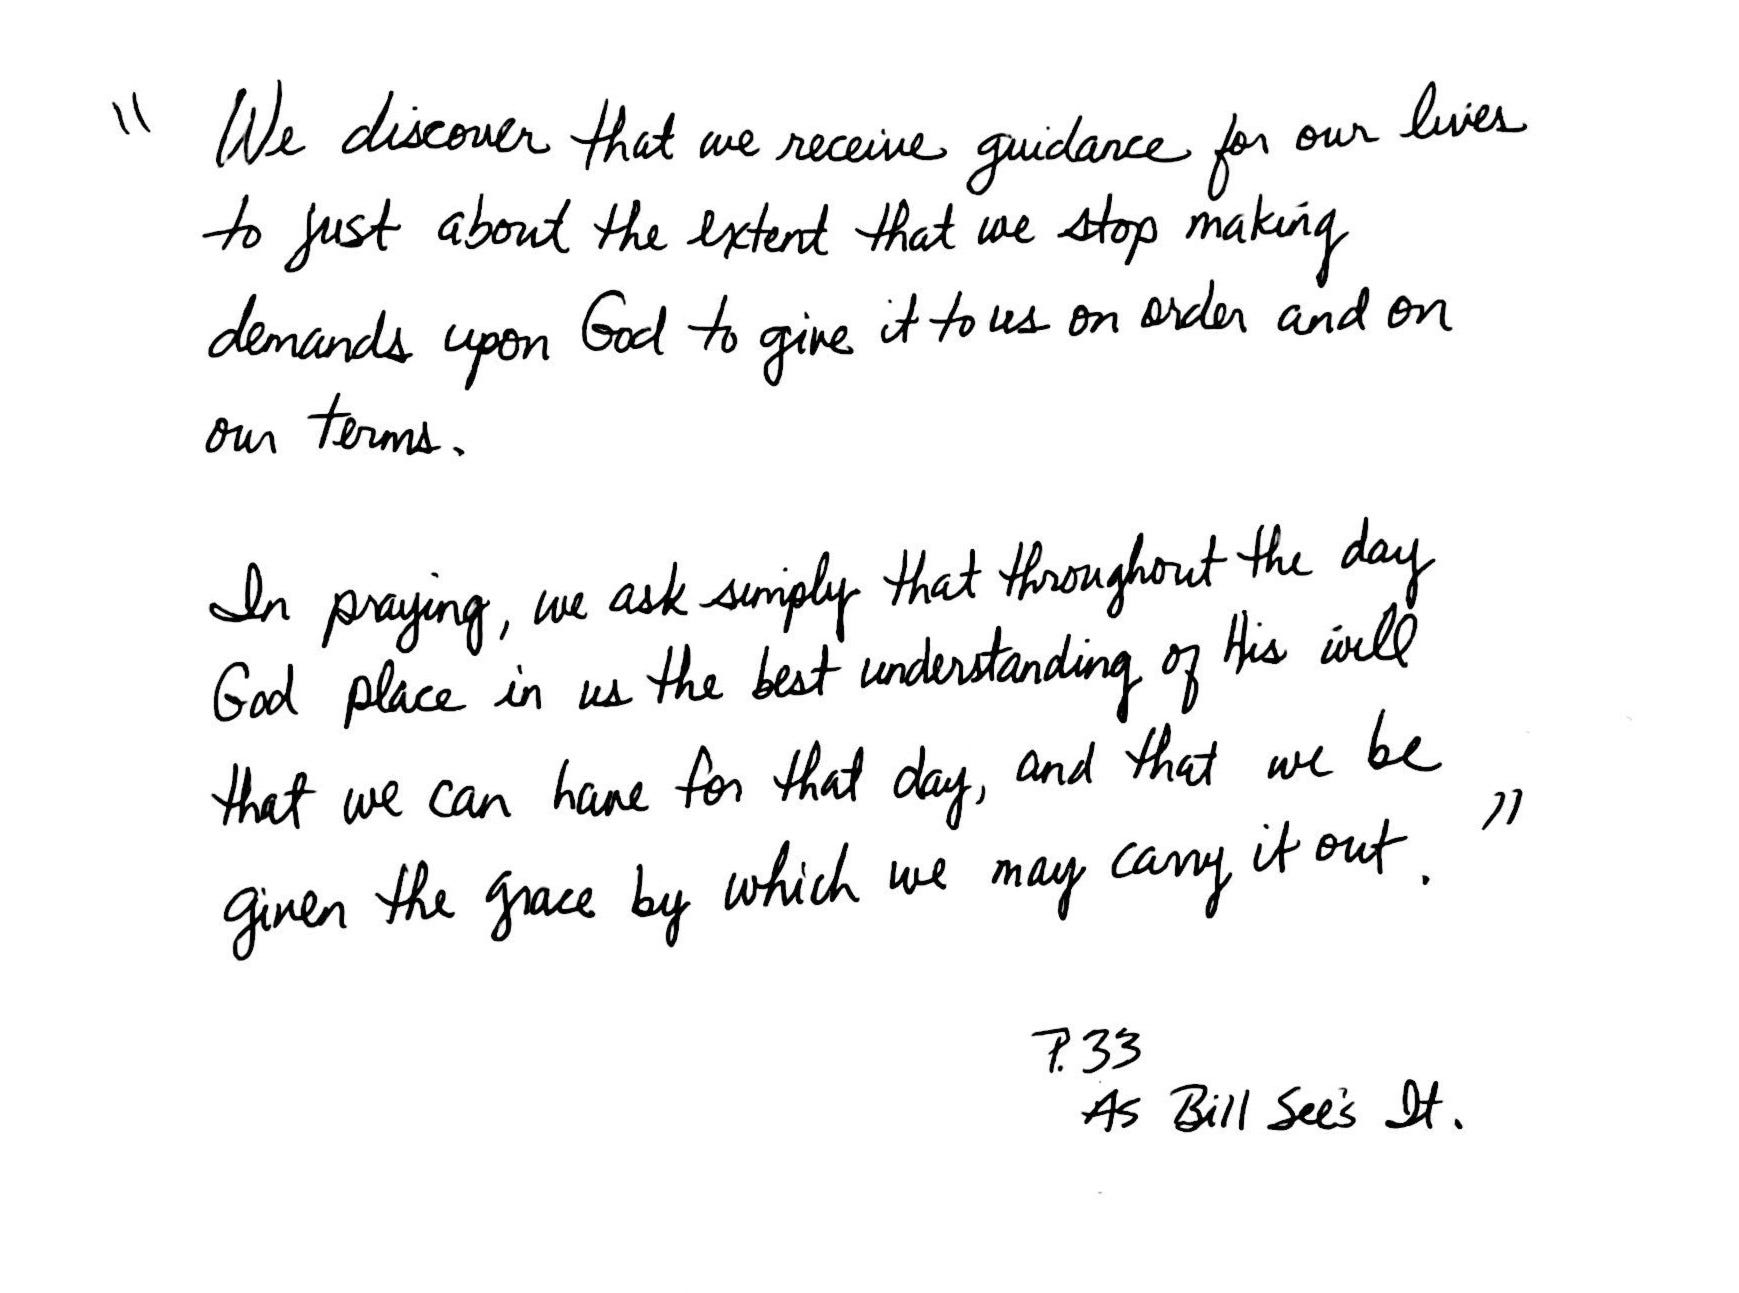 " We discover that we receive guidance for our lives
to just about the extent that we stop making
demands upon God to give it to us on order and on
our terms.
In praying, we ask simply that throughout the day
God place in us the best understanding of His will
that we can have for that day, and that we be
given the grace by which we may carry it out. "
P. 33
As Bill See's It.